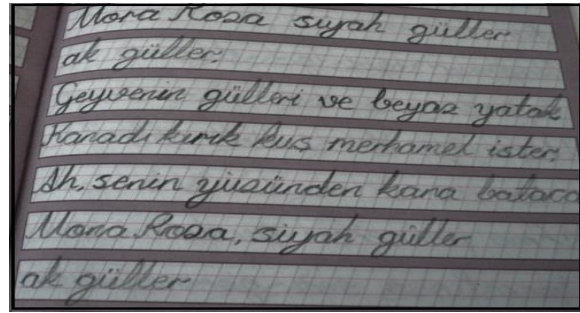 Mona Rosa siyah güller
ak güller.
Geyvenin gülleri ve beyaz yatak
Kanadı kırık kuş merhamet ister.
Ah, senin yüzünden kana bataca
Mona Rosa, siyah güller
ak güller